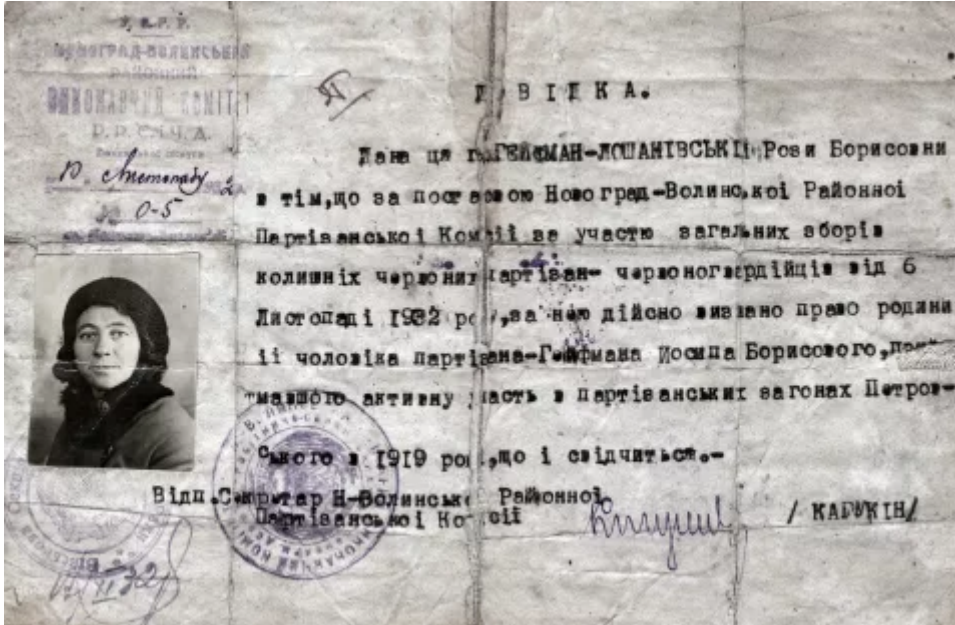 У.С.Р.Р.
НОВОГРАД-ВОЛИНСЬКИЙ
РАЙОННИЙ
ВИКОНАВЧИЙ КОМІТЕТ
Р.Р.С.К.Ч.Д.
10 Листопаду 1932
№ 0-5
ДОВІДКА.
Дана ця гр.ГЕЙФМАН-ЛОШАНІВСЬКІЙ Рози Борисовни
в тім,що за постановою Новоград-Волинської Районної
Партіванської Комісії за участю загальних зборів
колишніх червоних партіван- червоногвардійців від 6
Листопаді 1932 року,за нею дійсно визнано право родини
її чоловіка партізана-Гейфмана Йосипа Борисового,
тмавшого активну участь в партіванських загонах Петров-
ського в 1919 році,що і свідчиться.-
Відп.Секретар Н-Волинської Районної
Партіванської Комісії
/ КАБУКІН/